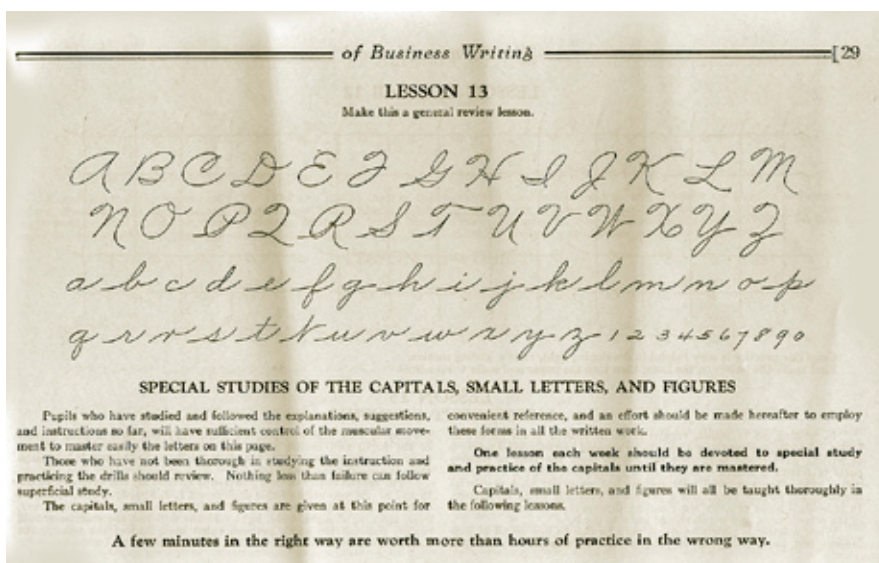 of Business Writing [29
LESSON 13
Make this a general review lesson.
A B C D E F G H I J K L M
N O P Q R S T U V W X Y Z
a b c d e f g h i j k l m n o p
q r r s t t u v w x y z 1 2 3 4 5 6 7 8 9 0
SPECIAL STUDIES OF THE CAPITALS, SMALL LETTERS, AND FIGURES
Pupils who have studied and followed the explanations, suggestions,
and instructions so far, will have sufficient control of the muscular move-
ment to master easily the letters on this page.
Those who have not been thorough in studying the instruction and
practicing the drills should review. Nothing less than failure can follow
superficial study.
The capitals, small letters, and figures are given at this point for
convenient reference, and an effort should be made hereafter to employ
these forms in all the written work.
One lesson each week should be devoted to special study
and practice of the capitals until they are mastered.
Capitals, small letters, and figures will all be taught thoroughly in
the following lessons.
A few minutes in the right way are worth more than hours of practice in the wrong way.